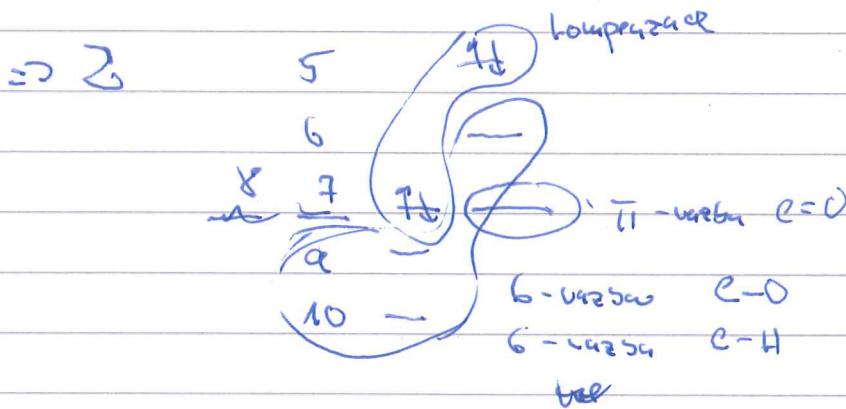 kompenzace
=> 2 5 ↑↓
6 —
8 7 ↑↓ — π-vazba C=O
9 —
10 — σ-vazba C-O
σ-vazba C-H